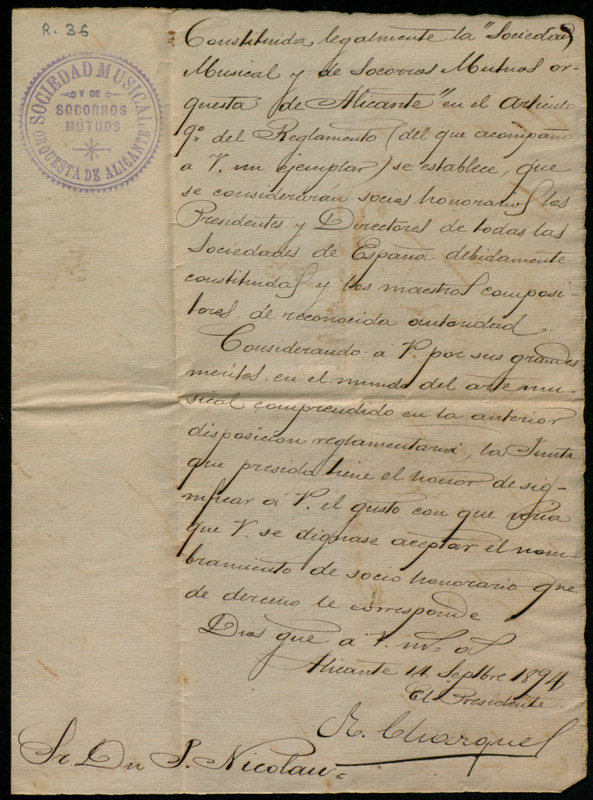 R. 36
SOCIEDAD MUSICAL
Y DE
SOCORROS
MÚTUOS
ORQUESTA DE ALICANTE
Constituida legalmente la "Sociedad
Musical y de Socorros Mutuos or-
questa de Alicante" en el Artículo
9º del Reglamento (del que acompaño
á V. un ejemplar) se establece, que
se considerarán socios honorarios los
Presidentes y Directores de todas las
Sociedades de España debidamente
constituidas y los maestros composi-
tores de reconocida autoridad.
Considerando á V. por sus grandes
meritos en el mundo del arte mu-
sical comprendido en la anterior
disposición reglamentaria, la Junta
que presido tiene el honor de sig-
nificar á V. el gusto con que veria
que V. se dignase aceptar el nom-
bramiento de socio honorario que
de derecho le corresponde
Dios gue á V. m.s a.s
Alicante 14 Septbre 1894
El Presidente
Sr Dn Nicolau